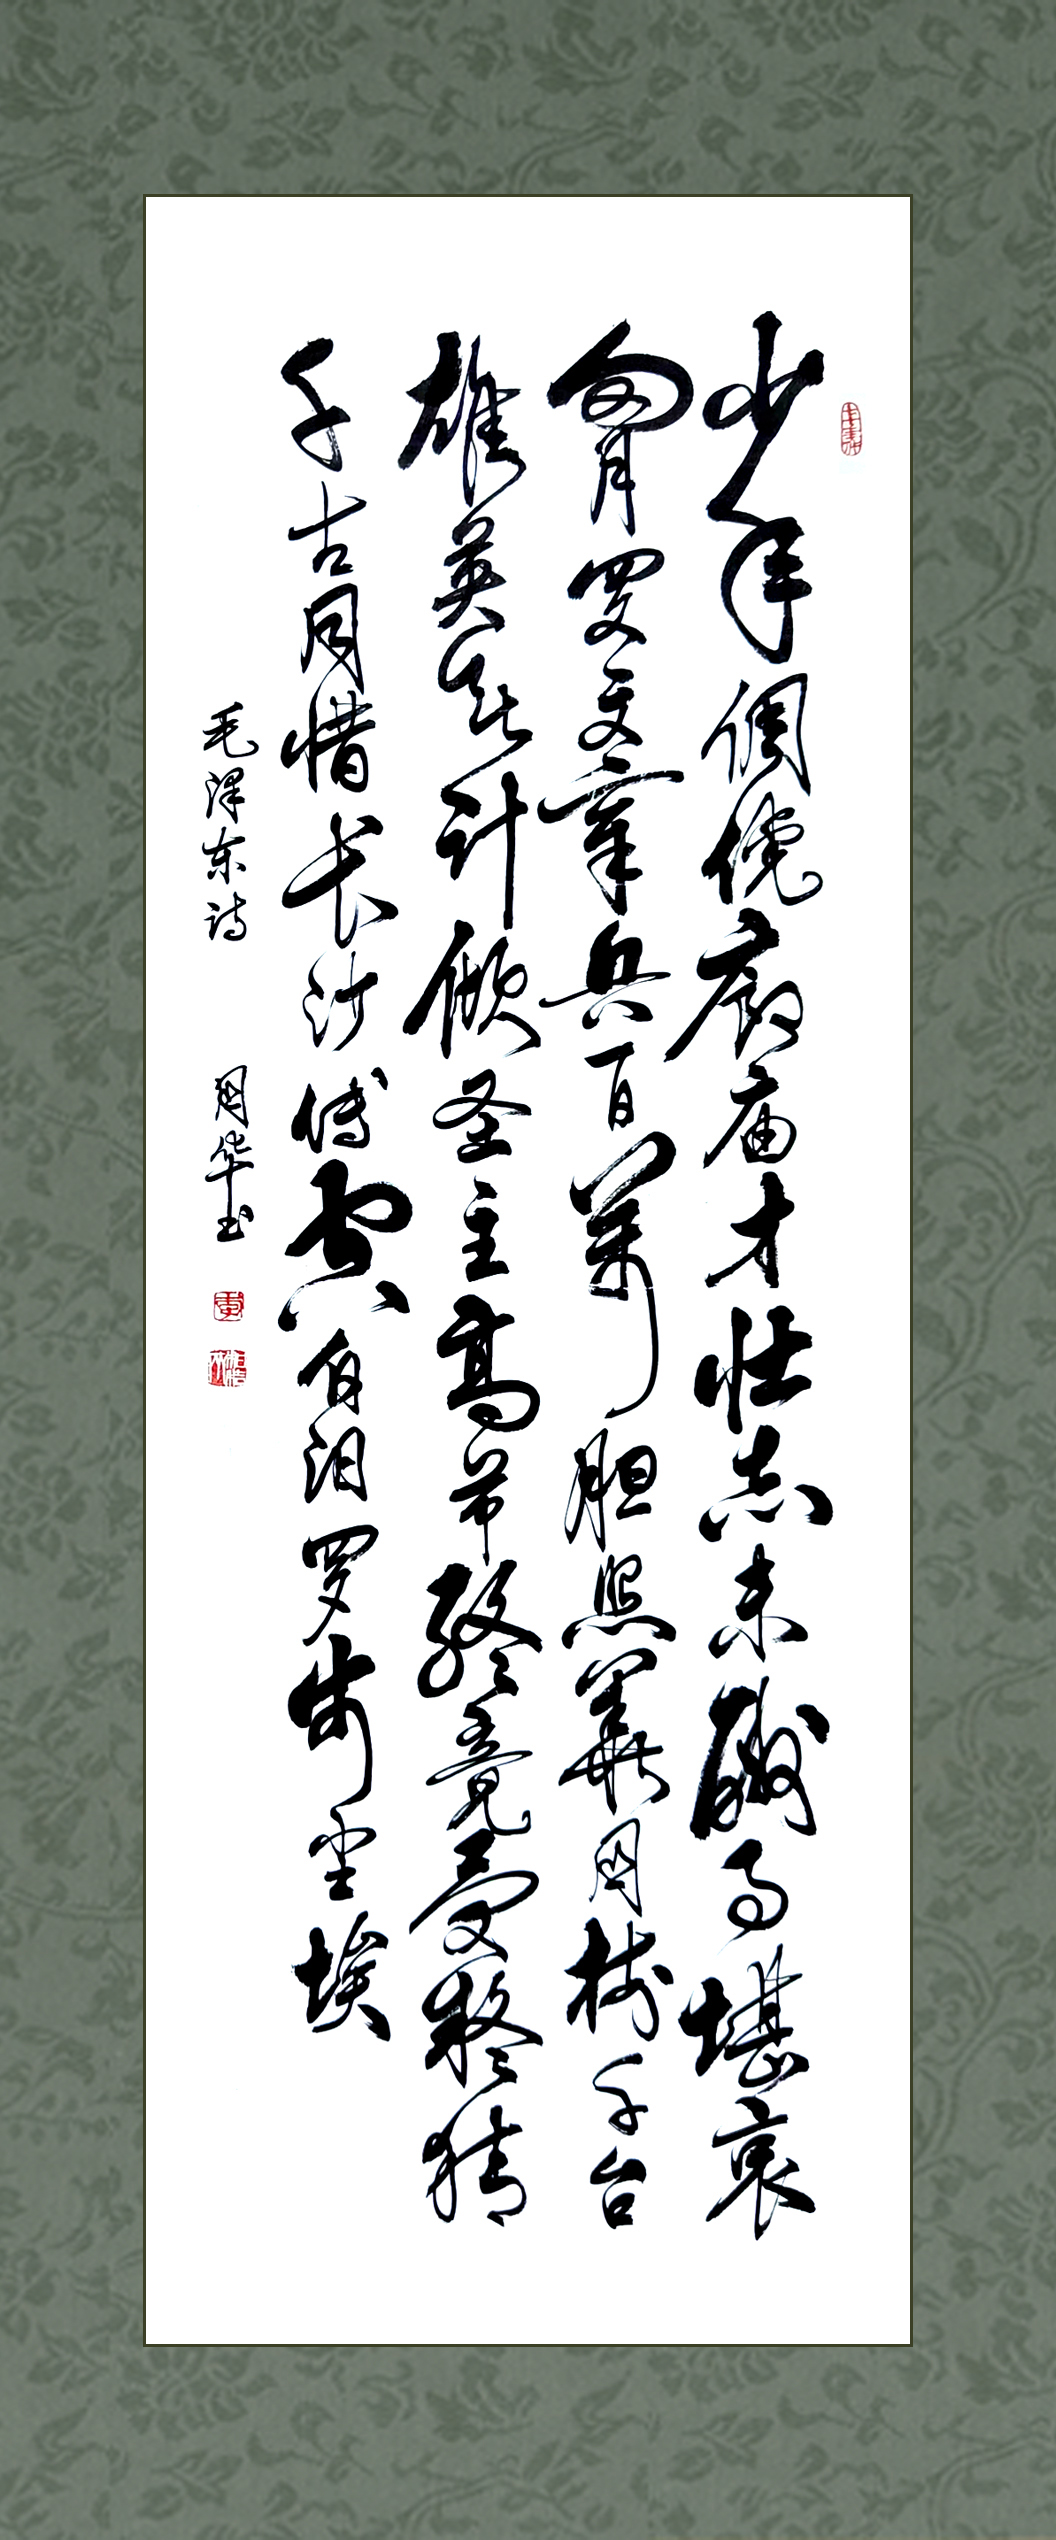 少年倜傥廊庙才壮志未酬事堪哀
胸罗文章兵百萬胆照華国树千台
雄英无计倾圣主高节终竟受疑猜
千古同惜长沙傅空白汨罗步尘埃
毛泽东诗